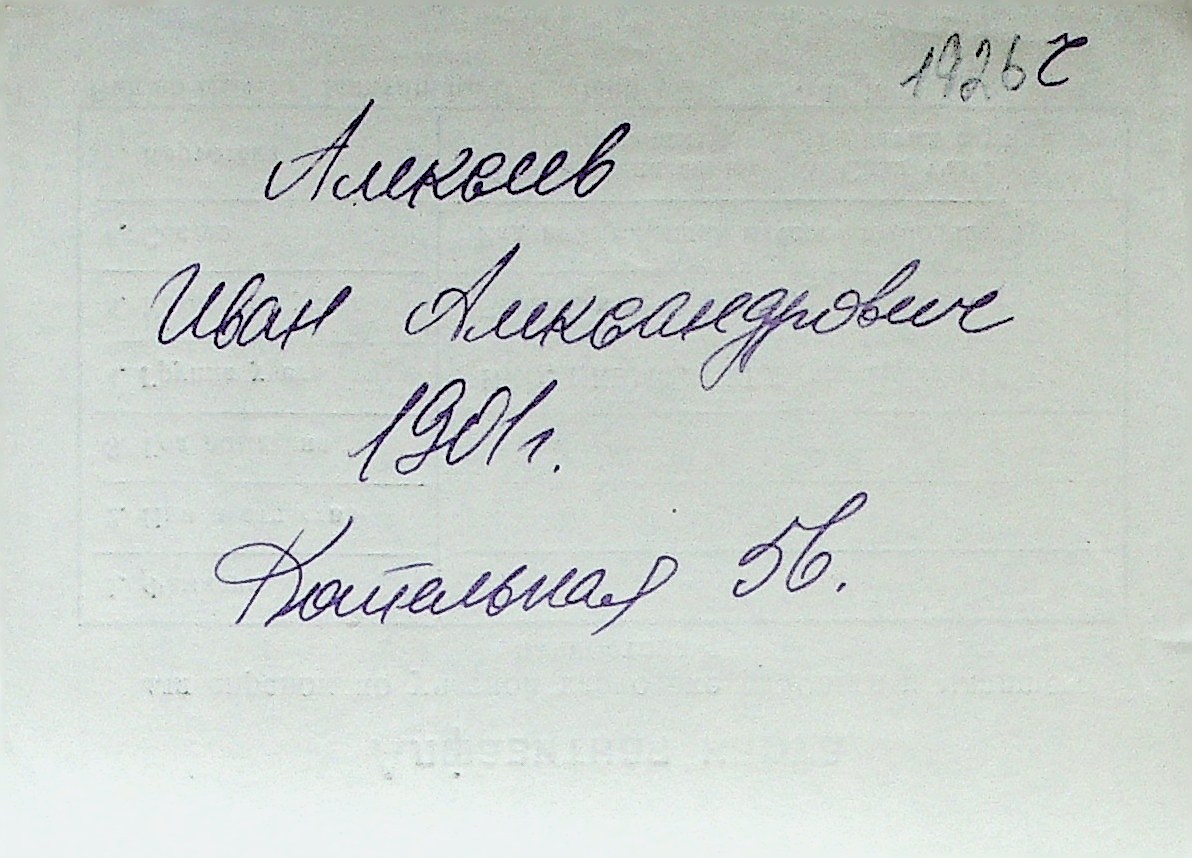 1926 г
Алексеев
Иван Александрович
1901г.
Котельная 56.